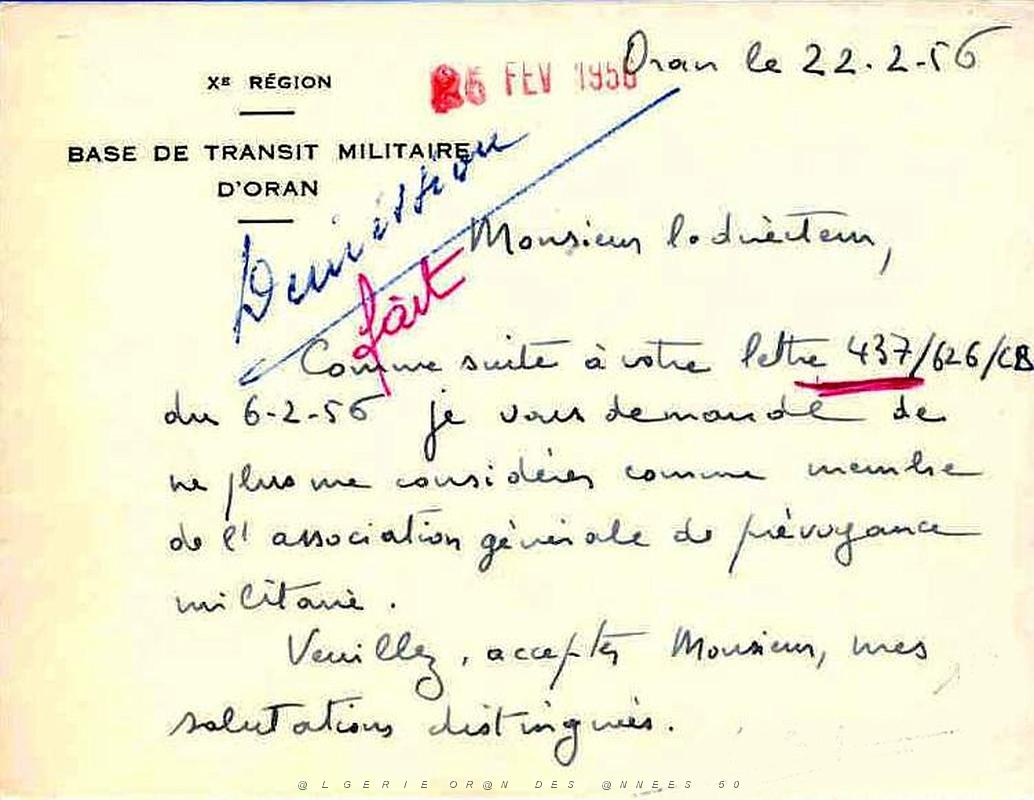 Xe RÉGION
BASE DE TRANSIT MILITAIRE
D'ORAN
26 FEV 1956
Oran le 22.2-56
Démission
fait
Monsieur le directeur,
Comme suite à votre lettre 437/626/CB
du 6-2-56 je vous demande de
ne plus me considérer comme membre
de l'association générale de prévoyance
militaire.
Veuillez, accepter Monsieur, mes
salutations distinguées.
@LGERIE OR@N DES @NNEES 50